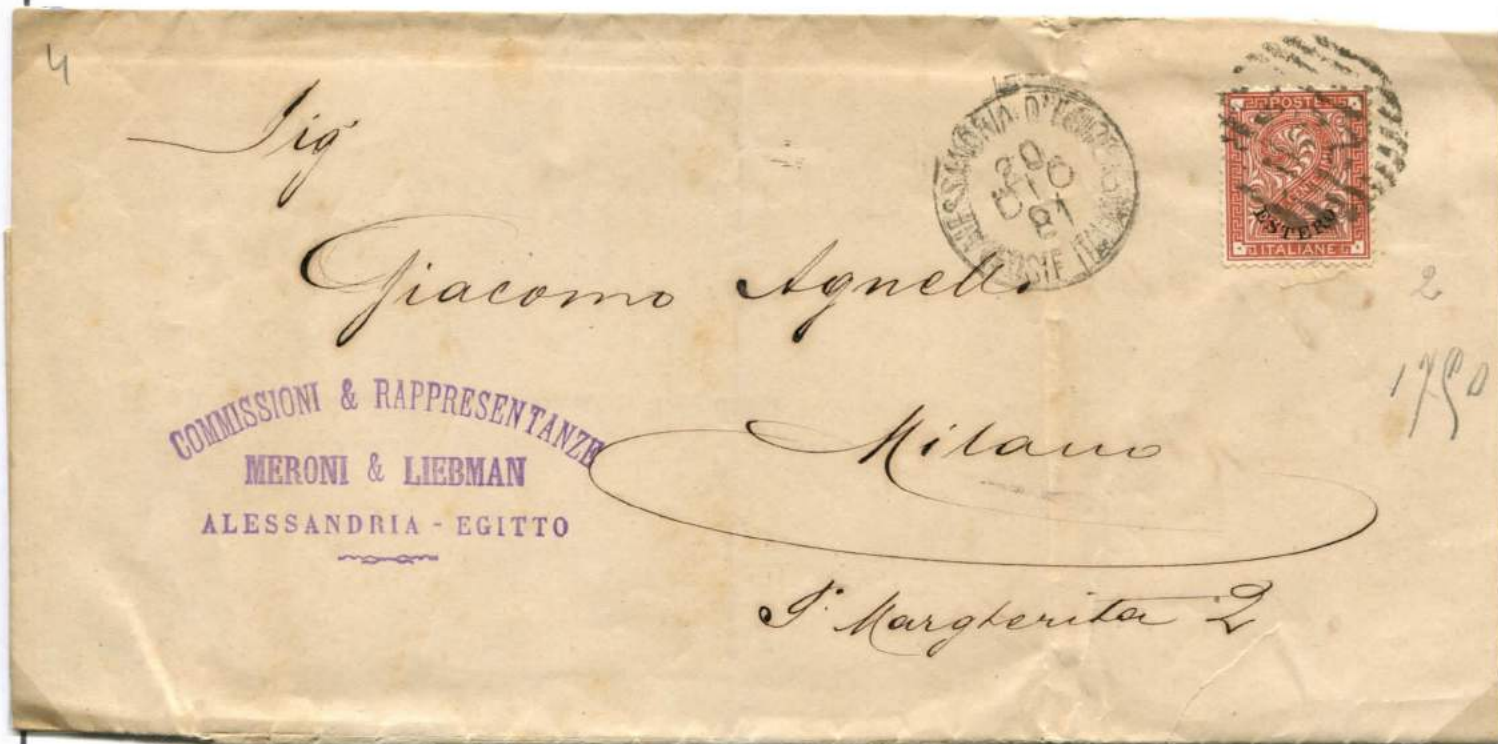 4
Sig
Giacomo Agnelli
Milano
S. Margherita 2
COMMISSIONI & RAPPRESENTANZE
MERONI & LIEBMAN
ALESSANDRIA - EGITTO
ALESSANDRIA D'EGITTO
ITALIANE
81
POSTE
CENT
ESTERO
ITALIANE
2